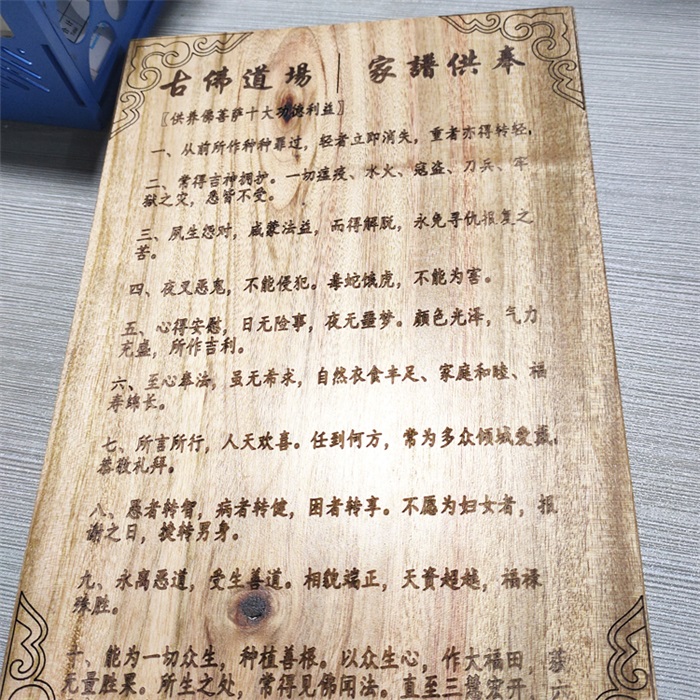 古佛道場 | 家譜供奉
〖供养佛菩萨十大功德利益〗
一、从前所作种种罪过，轻者立即消失，重者亦得转轻，
二、常得吉神拥护。一切瘟疫、水火、寇盗、刀兵、牢
狱之灾，悉皆不受。
三、夙生怨对，咸蒙法益，而得解脱，永免寻仇报复之
苦。
四、夜叉恶鬼，不能侵犯。毒蛇饿虎，不能为害。
五、心得安慰，日无险事，夜无噩梦。颜色光泽，气力
充盛，所作吉利。
六、至心奉法，虽无希求，自然衣食丰足、家庭和睦、福
寿绵长。
七、所言所行，人天欢喜。任到何方，常为多众倾城爱戴，
恭敬礼拜。
八、愚者转智，病者转健，困者转亨。不愿为妇女者，报
谢之日，捷转男身。
九、永离恶道，受生善道。相貌端正，天资超越，福禄
殊胜。
十、能为一切众生，种植善根。以众生心，作大福田，恭
无量胜果。所生之处，常得见佛闻法。直至三慧宏开，六